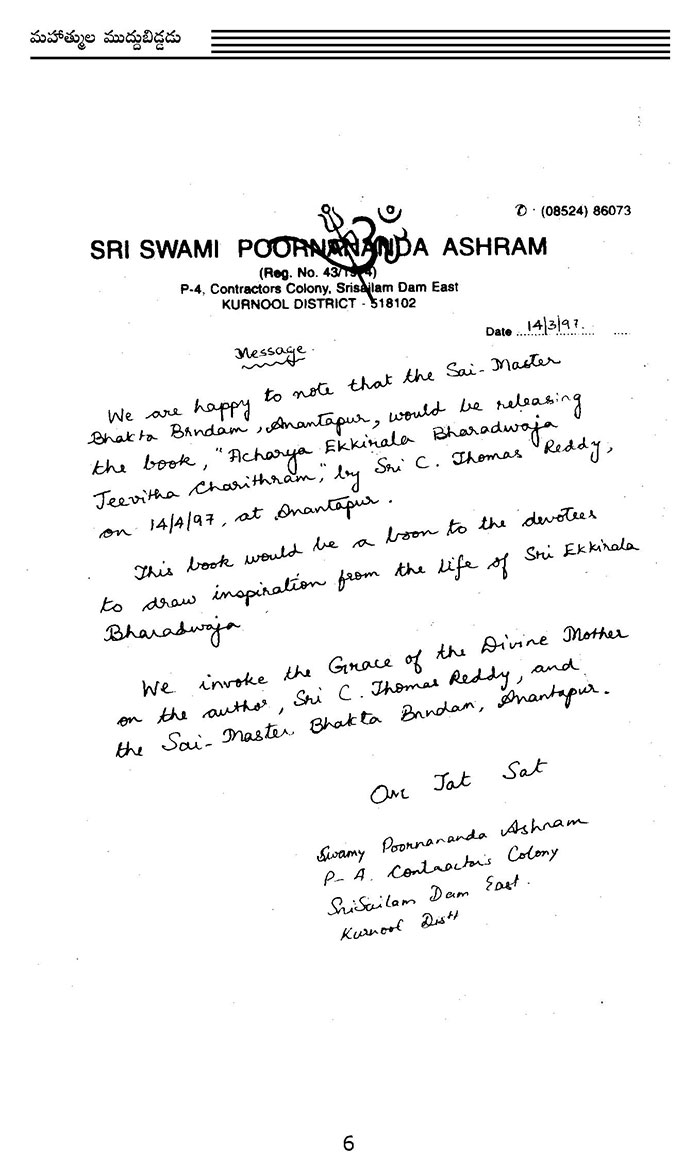 మహాత్ముల ముద్దుబిడ్డడు
✆ : (08524) 86073
SRI SWAMI POORNANANDA ASHRAM
(Reg. No. 43/1974)
P-4, Contractors Colony, Srisailam Dam East
KURNOOL DISTRICT - 518102
Date 14/3/97.
Message.
We are happy to note that the Sai-Master
Bhakta Brndam, Anantapur, would be releasing
the book, "Acharya Ekkirala Bharadwaja
Jeevitha Charithram," by Sri C. Thomas Reddy,
on 14/4/97, at Anantapur.
This book would be a boon to the devotees
to draw inspiration from the life of Sri Ekkirala
Bharadwaja
We invoke the Grace of the Divine Mother
on the author, Sri C. Thomas Reddy, and
the Sai-Master Bhakta Brndam, Anantapur.
Om Tat Sat
Swamy Poornananda Ashram
P-4. Contractors Colony
SriSailam Dam East.
Kurnool Distt
6